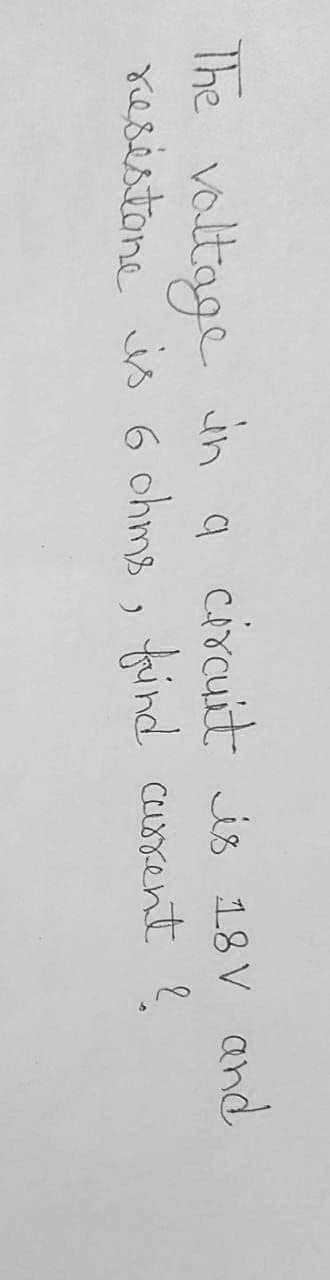 The voltage in a circuit is 18V and
resistane is 6 ohms, find current?